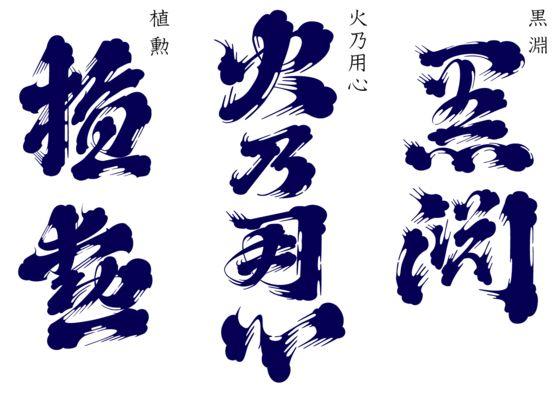 黒淵
黒淵
火乃用心
火乃用心
植勲
植勲